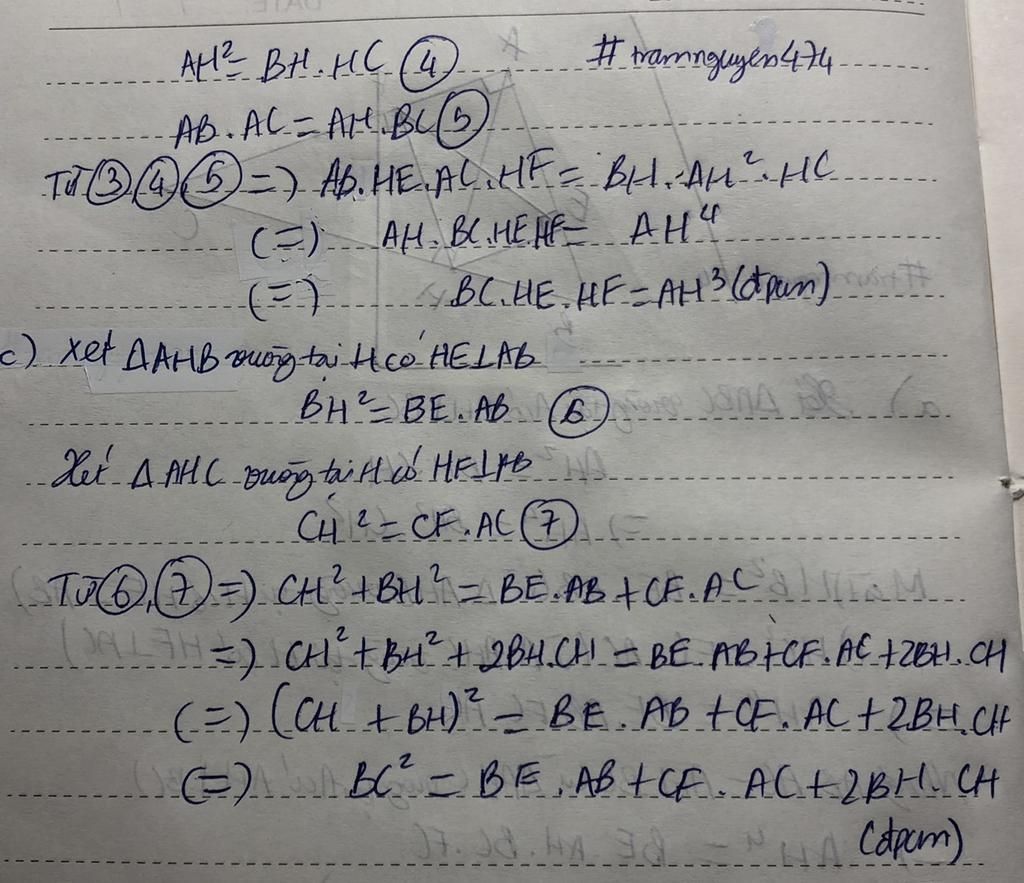 AH² = BH.HC ④ # tramnguyen474
AB.AC = AH.BC ⑤
Từ ③④⑤ =) AB.HE.AC.HF = BH.AH².HC
(=) AH.BC.HE.HF = AH⁴
(=) BC.HE.HF = AH³ (đpcm)
c) Xét ΔAHB vuông tại H có HE⊥AB
BH² = BE.AB ⑥
Xét ΔAHC vuông tại H có HF⊥AB
CH² = CF.AC ⑦
Từ ⑥,⑦ =) CH² + BH² = BE.AB + CF.AC
=) CH² + BH² + 2BH.CH = BE.AB + CF.AC + 2BH.CH
(=) (CH + BH)² = BE.AB + CF.AC + 2BH.CH
(=) BC² = BE.AB + CF.AC + 2BH.CH
(đpcm)